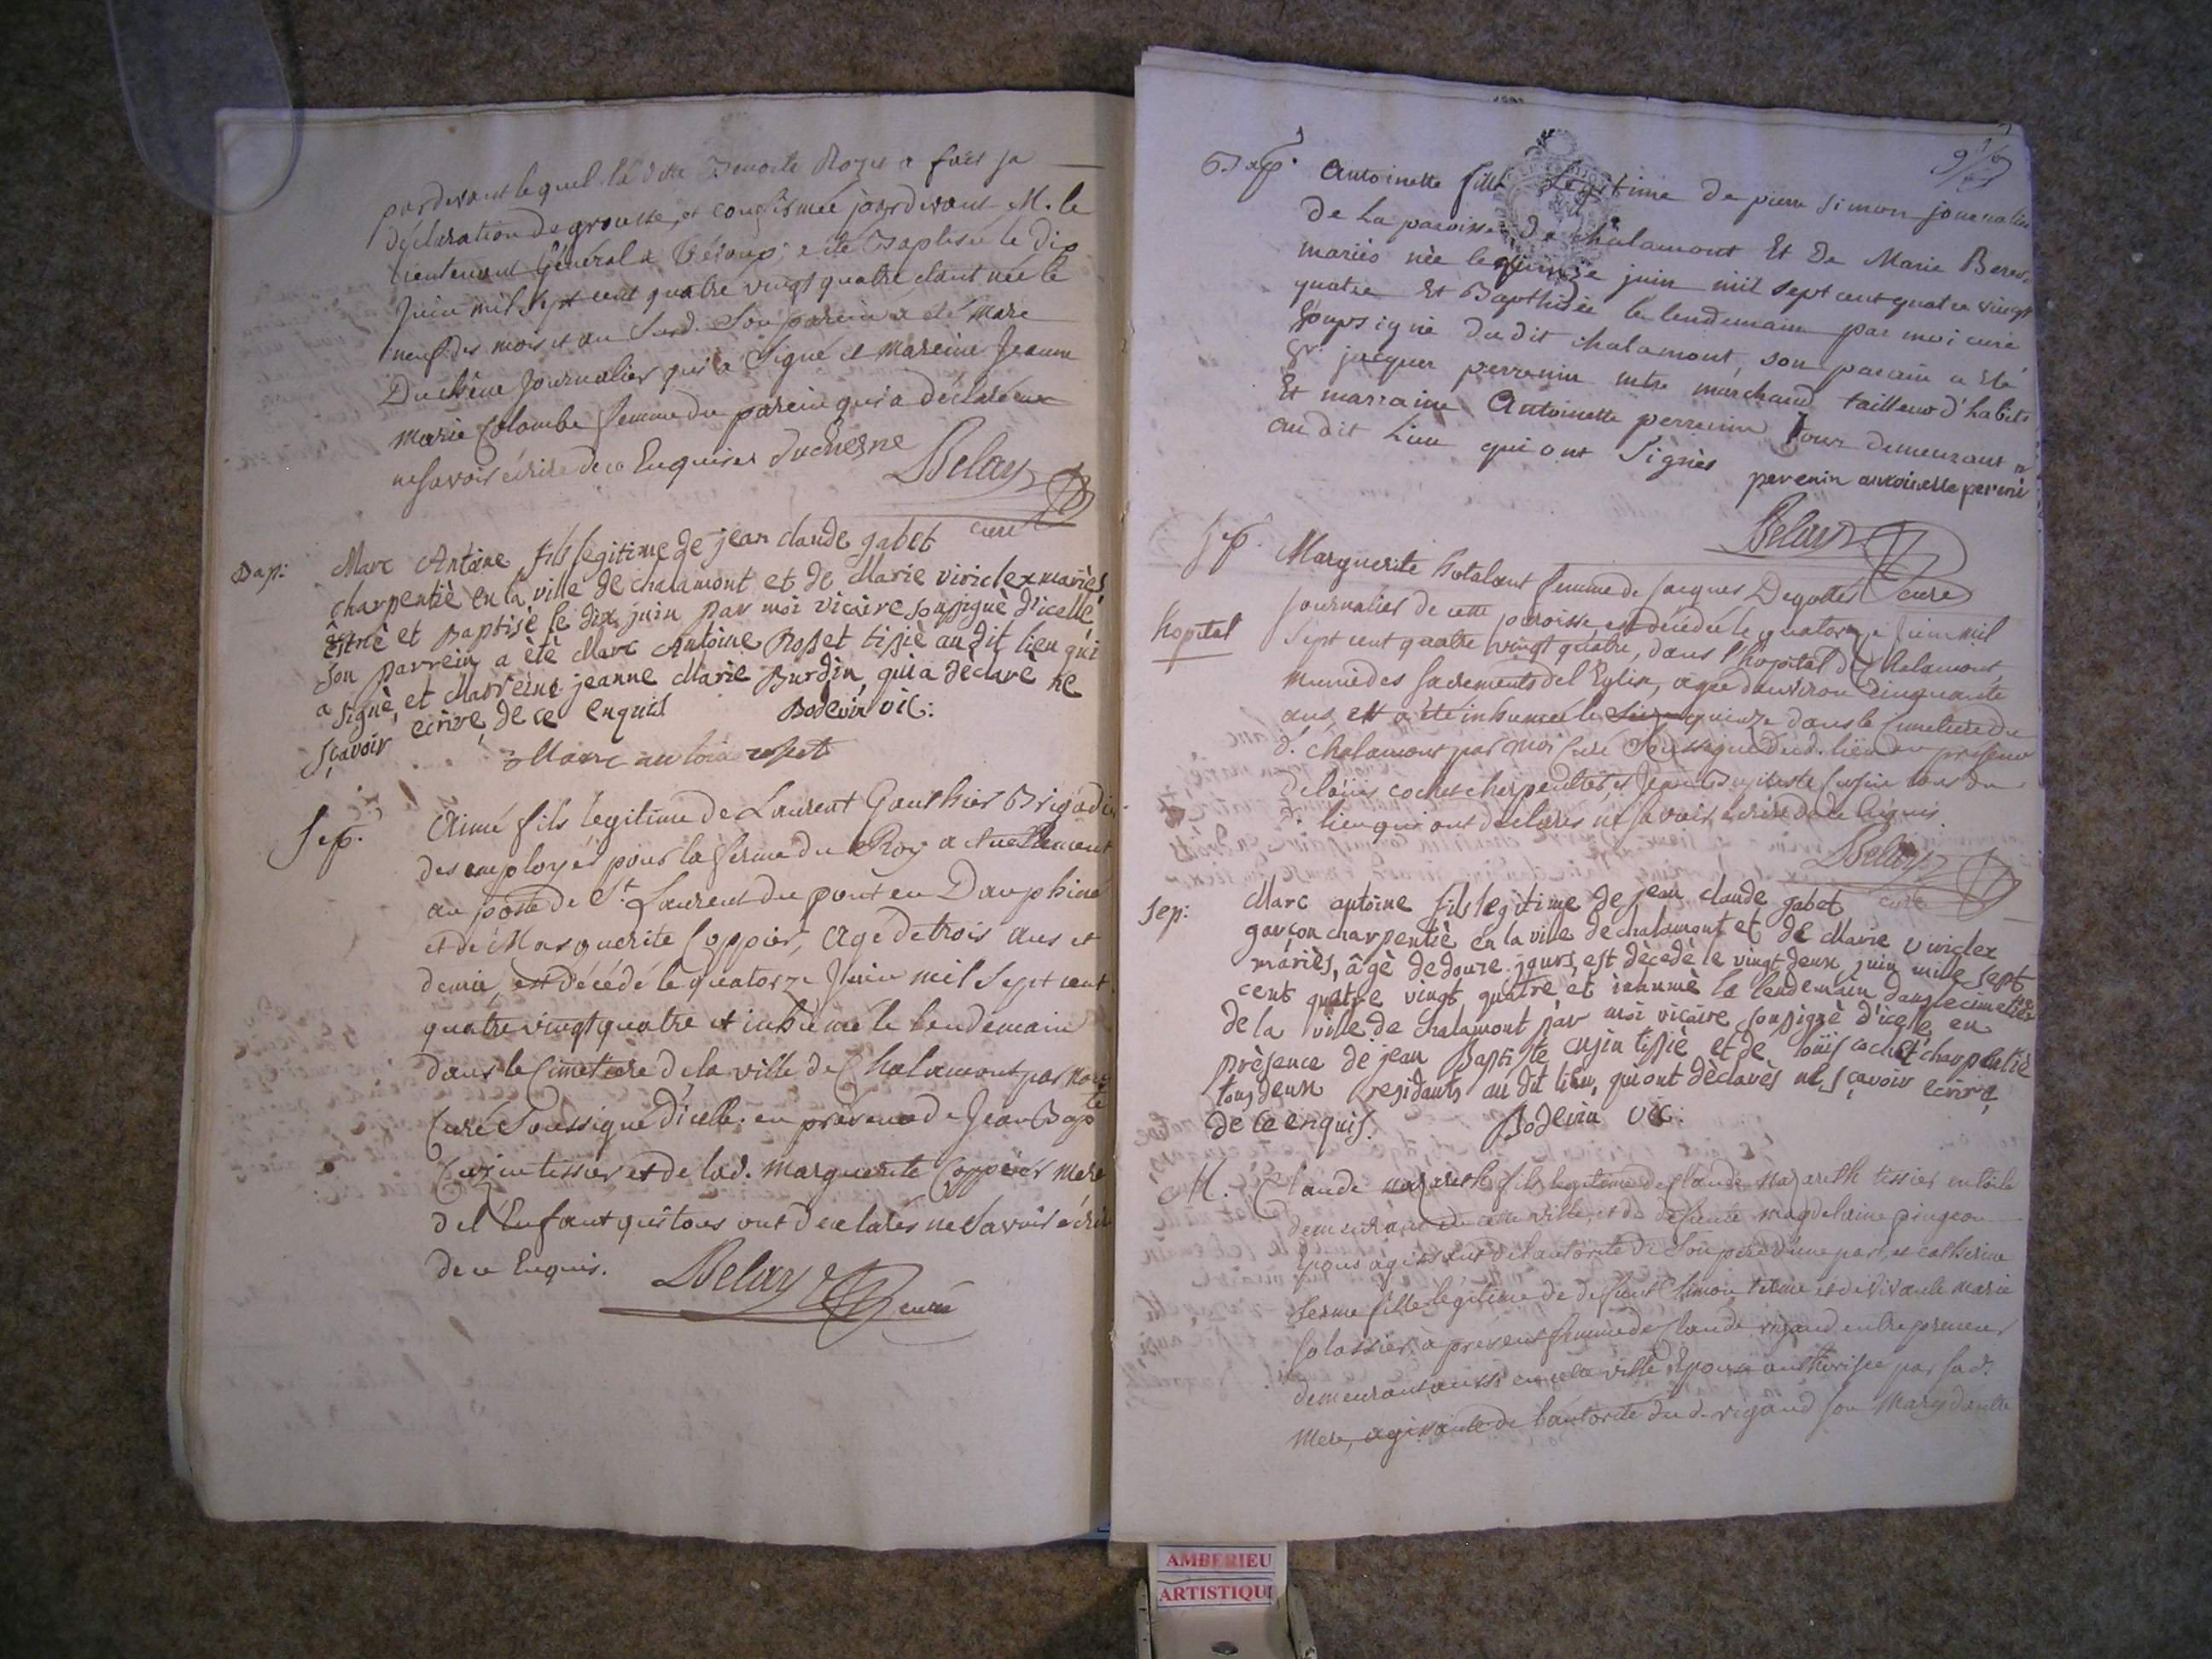 pardevant lequel la ditte Benoite a fait sa
déclaration de grosse, et confirmée pardevant M. le
Lieutenant Général a Trévoux; a été Baptisée le dix
Juin mil sept cent quatre vingt quatre étant née le
neuf des mois et an susd. Son parein a été Marc
Duchêne Journalier qui a signé et mareine Jeanne
Marie Colombe femme du parein qui a déclarée
ne savoir écrire de ce Enquise duchesne
Belay
curé
Bap: Marc Antoine fils legitime de jean claude gabet
charpentiè en la ville de chalamont et de Marie viriclex mariès
est nè et Baptisè le dix juin par moi vicaire soussignè d'icelle,
son parrein a ètè Marc Antoine Rosset tissiè au dit lieu qui
a signè, et Marreine jeanne Marie Burdin, qui a dèclarè ne
sçavoir ecrire de ce enquis Bodevin vic:
Marc antoine rosset
Sep. Aimé fils legitime de Laurent Gauthier Brigadier
des employés pour la ferme du Roy actuellement
au poste de St. Laurent du pont en Dauphiné
et de Marguerite Coppier, agé de trois ans et
demi, est décédé le quatorze Juin mil sept cent
quatre vingt quatre et inhumé le lendemain
dans le Cimetiere de la ville de Chalamont par moy
Curé Soussigné d'icelle. en présence de Jean Bapte
Cusin tessier et de lad. Marguerite Coppier mere
de l'Enfant qui tous ont déclarés ne savoir écrire
de ce Enquis. Belay curé
Bap. Antoinette fille Legitime de pierre simon journalier
De La paroisse de chalamont Et De Marie
mariés née le quinze juin mil sept cent quatre vingt
quatre Et Bapthisée le lendemain par moi curé
soussigné du dit chalamont, son parain a été
Sr. jacques perrenin mtre marchand tailleur d'habits
Et marraine Antoinette perrenin tous demeurant
au dit Lieu qui ont signés
perenin antoinette perenin
Belay
curé
Sep. Marguerite femme de Jacques Degottes
Journalier de cette paroisse est décédée le quatorze Juin mil
hopital sept cent quatre vingt quatre, dans l'hopital de Chalamont,
munie des sacrements de l'Eglise, agée d'environ cinquante
ans, et a été inhumée le quinze dans le Cimetiere du
d. chalamont par moi Curé Soussigné dud. lieu en présence
de loüis cochet charpentier, et Jean Baptiste Cusin tous du
d. lieu qui ont déclarés ne savoir écrire de ce Enquis.
Belay
curé
Sep: Marc antoine fils legitime de jean claude gabet
garçon charpentiè en la ville de chalamont et de Marie viriclex
mariès, âgè de douze jours, est dècèdè le vingt deux juin mille sept
cent quatre vingt quatre, et inhumè le lendemain dans le cimetiere
de la ville de chalamont par moi vicaire soussignè d'icelle, en
prèsence de jean Baptiste cusin tissiè et de loüis cochet charpentiè
tous deux residants au dit lieu, qui ont dèclarès ne sçavoir ecrire
de ce enquis. Bodevin vic:
M. Claude nazareth fils legitime de Claude Nazareth tissier en toile
demeurant en cette ville, et de defunte magdelaine pingeon
Epoux agissant de l'autorité de son pere d'une part, et catherine
terme fille légitime de defunt Simon terme et de vivante marie
a présent femme de Claude rigaud entrepreneur
demeurant aussi en cette ville Epouse authorisée par sad.
Mere, agissante de l'autorité du d. rigaud son Mary d'autre
AMBERIEU
ARTISTIQU